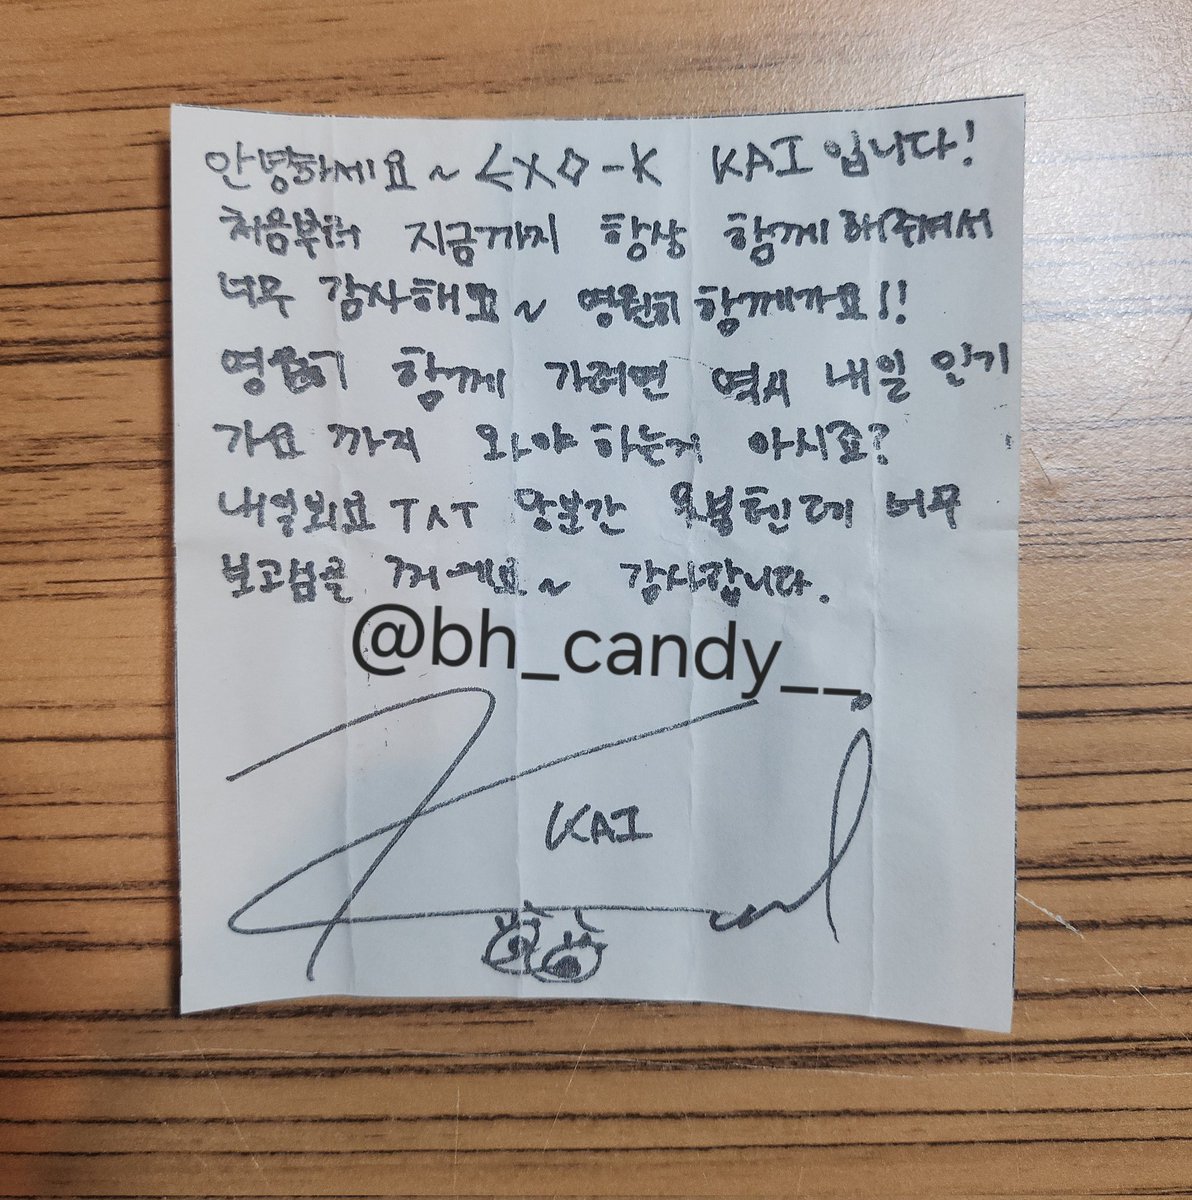 안녕하세요~ EXO-K KAI입니다!
처음부터 지금까지 항상 함께해주셔서
너무 감사해요~ 영원히 함께가요!!
영원히 함께 가려면 역시 내일 인기
가요 까지 와야하는거 아시죠?
내일봐요 TAT 당분간 못볼텐데 너무
보고싶을 꺼에요~ 감사합니다.
@bh_candy__
KAI